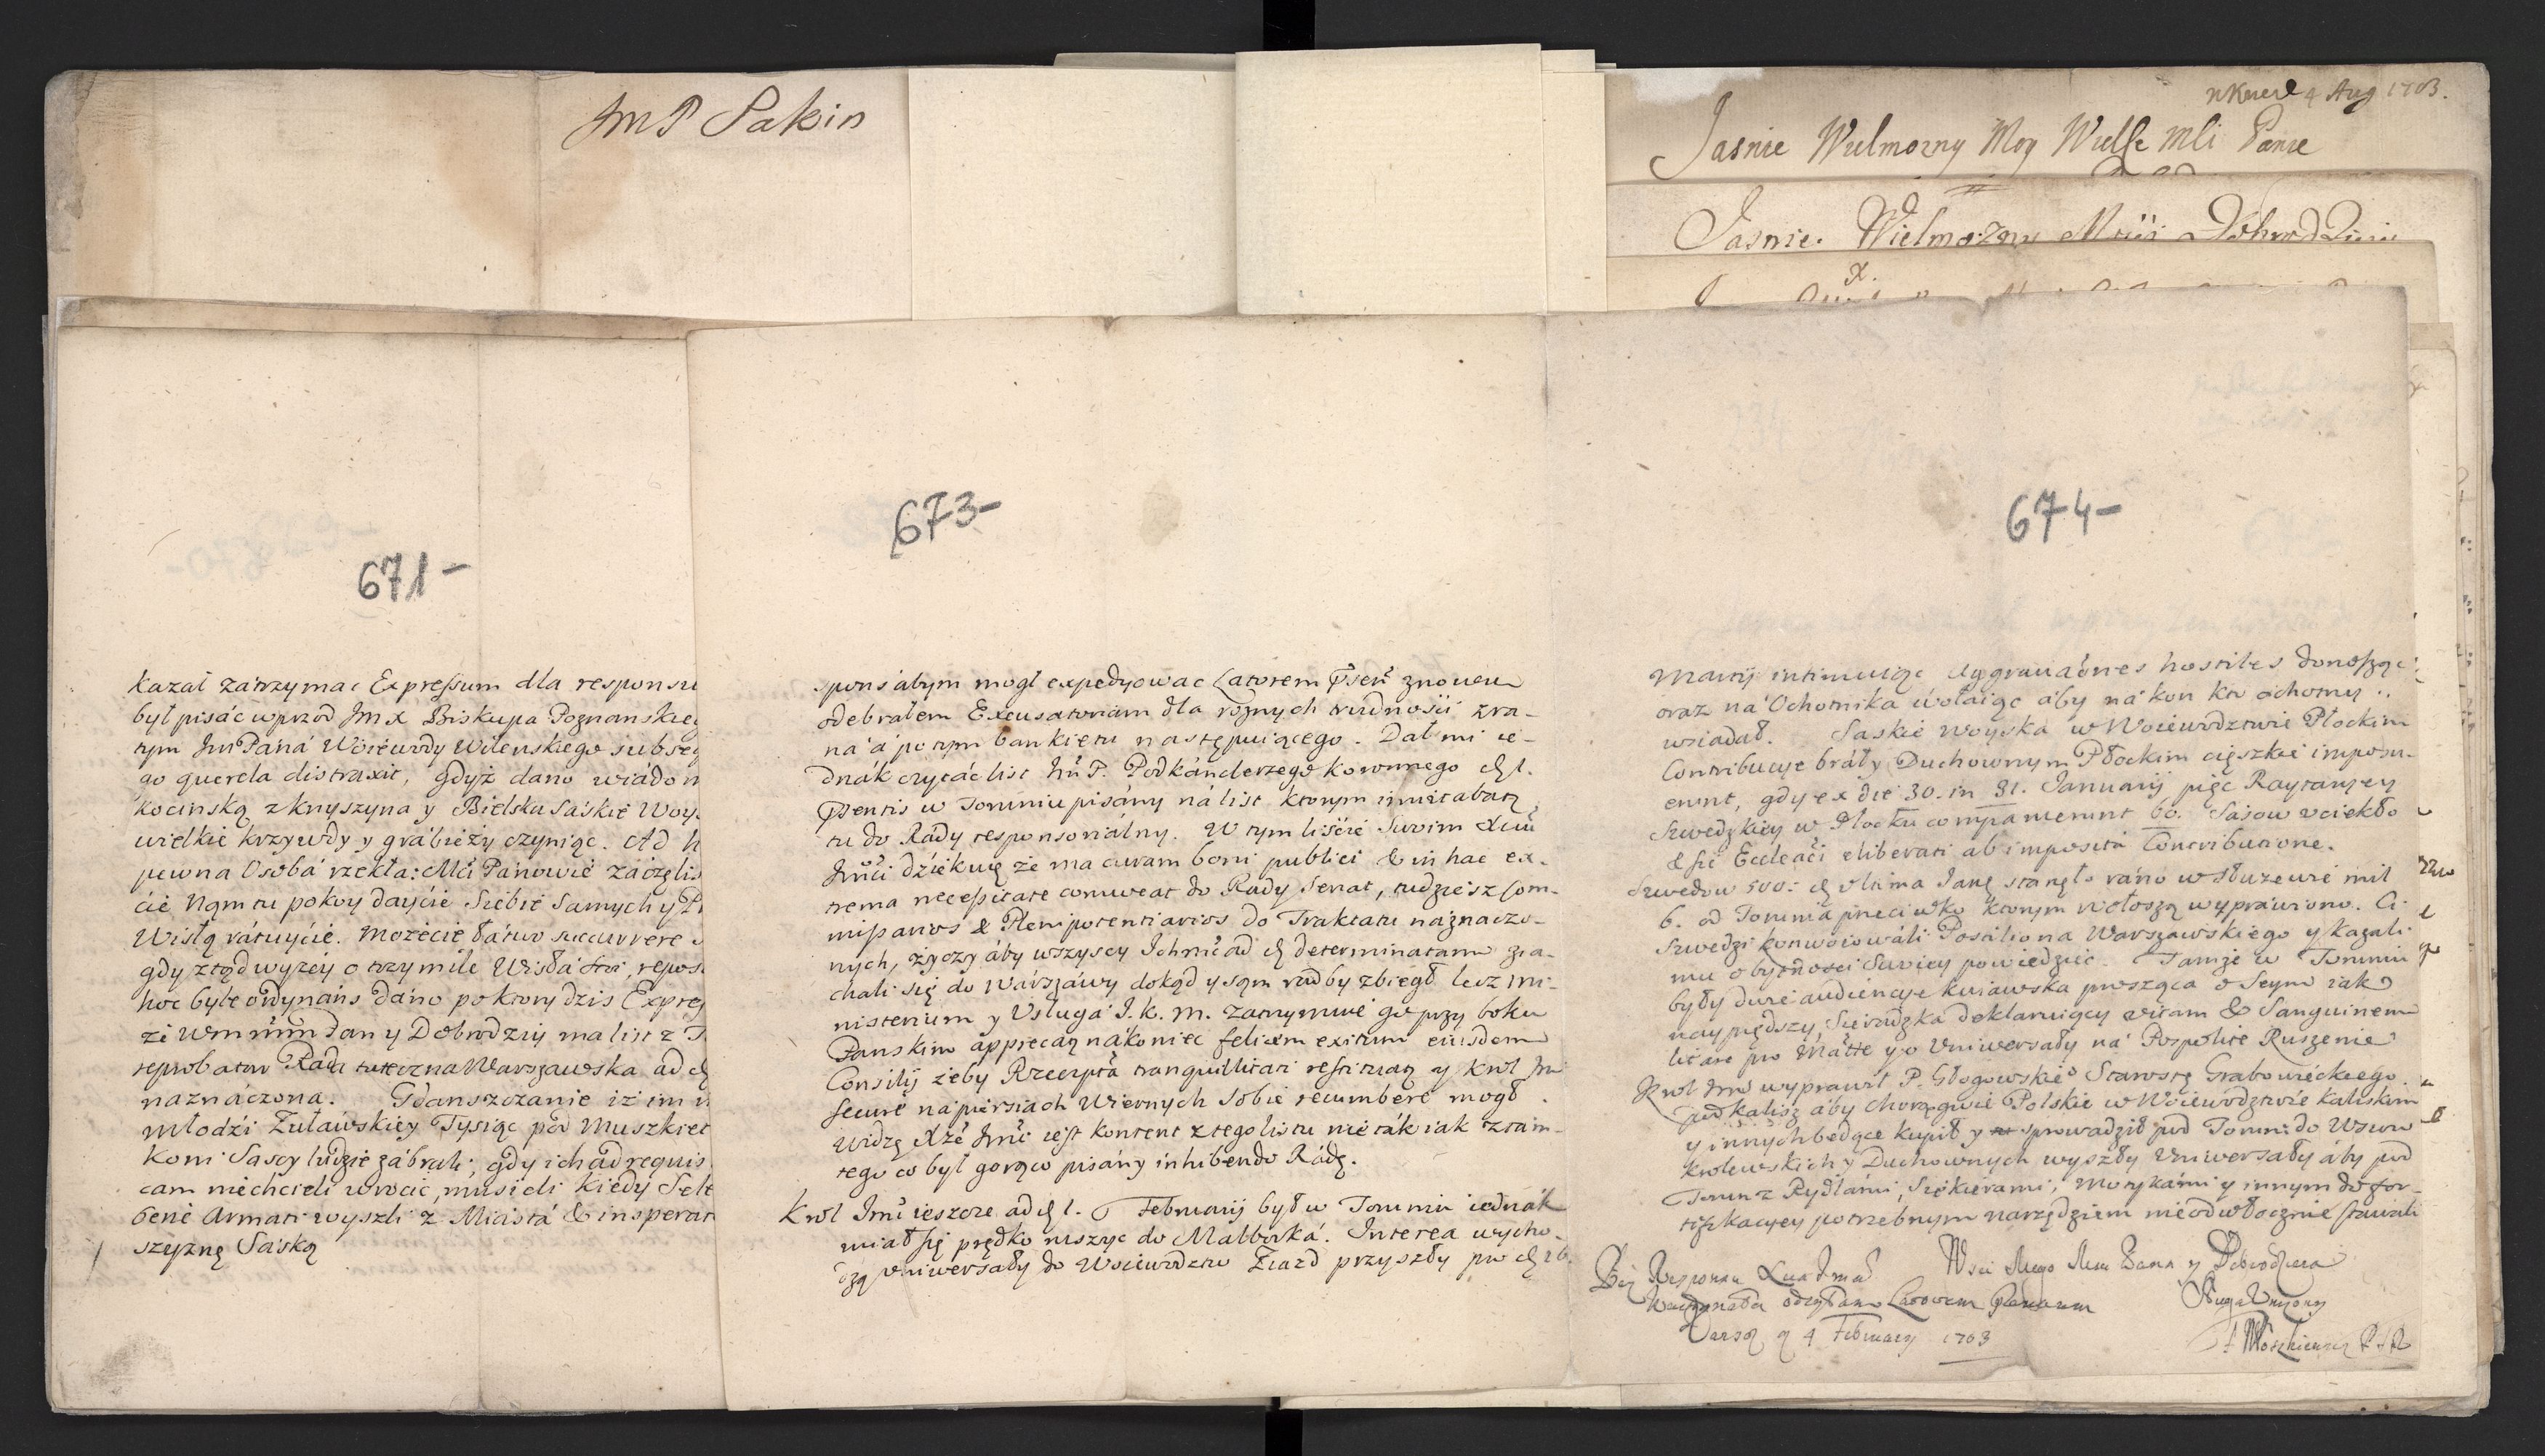 JmP Sakin
4 Aug 1703.
Jasnie Wielmozny Moy Mli Panie
Jasnie Wielmozny
671-
kazał zátrzymac Expressum dla responsu
był pisác wprzod Jmx Biskupa Poznanskieg
tym JmPáná Woiewody Wilenskiego subseq
go querela distraxit, gdyż dano wiádom
kocinską z Knyszyna y Bielska Sáskie Woys
wielkie krzywdy y grábieży czyniąc. Ad h
pewna Osobá rzekła: Mći Panowie záczęlis
cie Nam tu pokoy dayćie Siebie Samych y P
Wisłą rátuyćie. Możećie łátwo succurrere
gdy ztąd wyżey o trzy mile Wisłá stoi, repos
hoc było ordynáns dáno po ktory dzis Expres
że Wm Pan y Dobrodziy ma list z T
reprobatur Rada tuteczna Warszawska ad
náznáczona. Gdanszczanie iż im
młodźi Żuławskiey Tysiąc pod Muszkiet
koni Sascy ludzie zábrali, gdy ich ad requis
cam niechcieli wrocić, musieli kiedy Sete
bene Armati wyszli z Miástá & insperat
szyznę Sáską
673-
spons abym mogł expedyowac Latorem znowu
odebrałem Excusatoriam dla rożnych trudnosći zra-
ná á potym bankietu następuiącego. Dał mi ie-
dnák czytáć list Jm P. Podkánclerzego koronnego 1.
w Toruniu pisány ná list ktorym inuitabatur
tu do Rády responsoriálny. W tym liśćie Swoim
Jmći dźiękuię że ma curam boni publici & in hac ex-
trema necessitate conuocat do Rády Senat, tudziesz Com-
missarios & Plenipotentiarios do Traktatu náznaczo-
nych, życzy áby wszyscy Ichmć ad determinatam zia-
chali się do Wárszáwy dokąd y sąm rad by zbiegł lecz mi-
nisterium y Vsługa J. K. M. zatrzymuie go przy boku
Panskim nákoniec felicem exitum eiusdem
Consilij żeby Rzeczypta tranquillitati restituatur y krol Jm
secure ná piersiach wiernych Sobie recumbere mogł.
Widzę Xże Jmć iest kontent z tego listu nie ták iak z tám-
tego co był gorąco pisány inhibendo Rádę.
Krol Jmć ieszcze ad 1. Februarij był w Toruniu iednák
miał się prędko ruszyc do Malborká. Interea wycho-
dzą vniwersały do Woiewodztw Ziazd przyszły pro 26.
674-
Martij intimuiąc Aggrauaónes hostiles donosząc
oraz ná Ochotnika wołaiąc áby ná koń kto ochotny
wsiadał. Saskie Woyska w Woiewodztwie Płockim
Contribucye bráły Duchownym Płockim ciężkie imposu-
erunt, gdy ex die 30. in 31. Januarij pięc Raytaryey
Szwedzkiey w Płocku comparuerunt 60. Sasow vciekło
& sic Eccleáći eliberati ab imposita Contributione.
Szwedow 500. Ultima Jany stanęło ráno w Służewie mil
6. od Torunia przeciwko ktorym Wołoszą wypráwiono. Ci
Szwedzi konwoiowáli Postiliona Warszawskiego y kazali
mu o bytnośći Swoiey powiedzieć. Tamże w Toruniu
były dwie audiencye Kuiawska prosząca o Seym iák
nayprędszy, Sieradzka deklaruiący vitam & Sanguinem
litare pro Mátte y o Vniwersały ná Pospolite Ruszenie
Krol Jmć wyprawił P. Głogowskie Starostę Grabowieckiego
pod Kalisz áby Chorągwie Polskie w Woiewodztwie Kaliskim
y innych będące kupił y sprowadził pod Toruń do
krolewskich y Duchownych wyszły Vniwersały áby pod
Toruń z Rydlámi, Siekierami, Motykámi y innym do for-
tifikacyey potrzebnym narzędziem nieodwłocznie stawali
Bez Responsu
odsyłam Latorem
4 February 1703
Wsci mego Mm Pana y Dobrodzieia
Sługa Vniżony